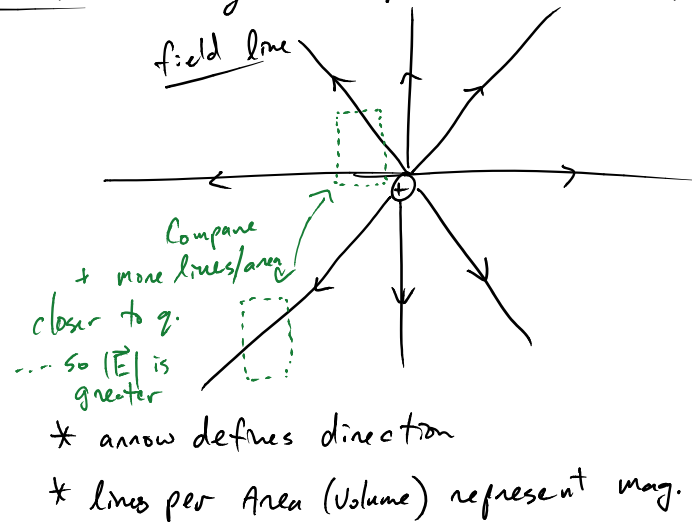 field line
+
Compare
+ more lines/area
closer to q.
.... so |E⃗| is
greater
* arrow defines direction
* lines per Area (Volume) represent mag.